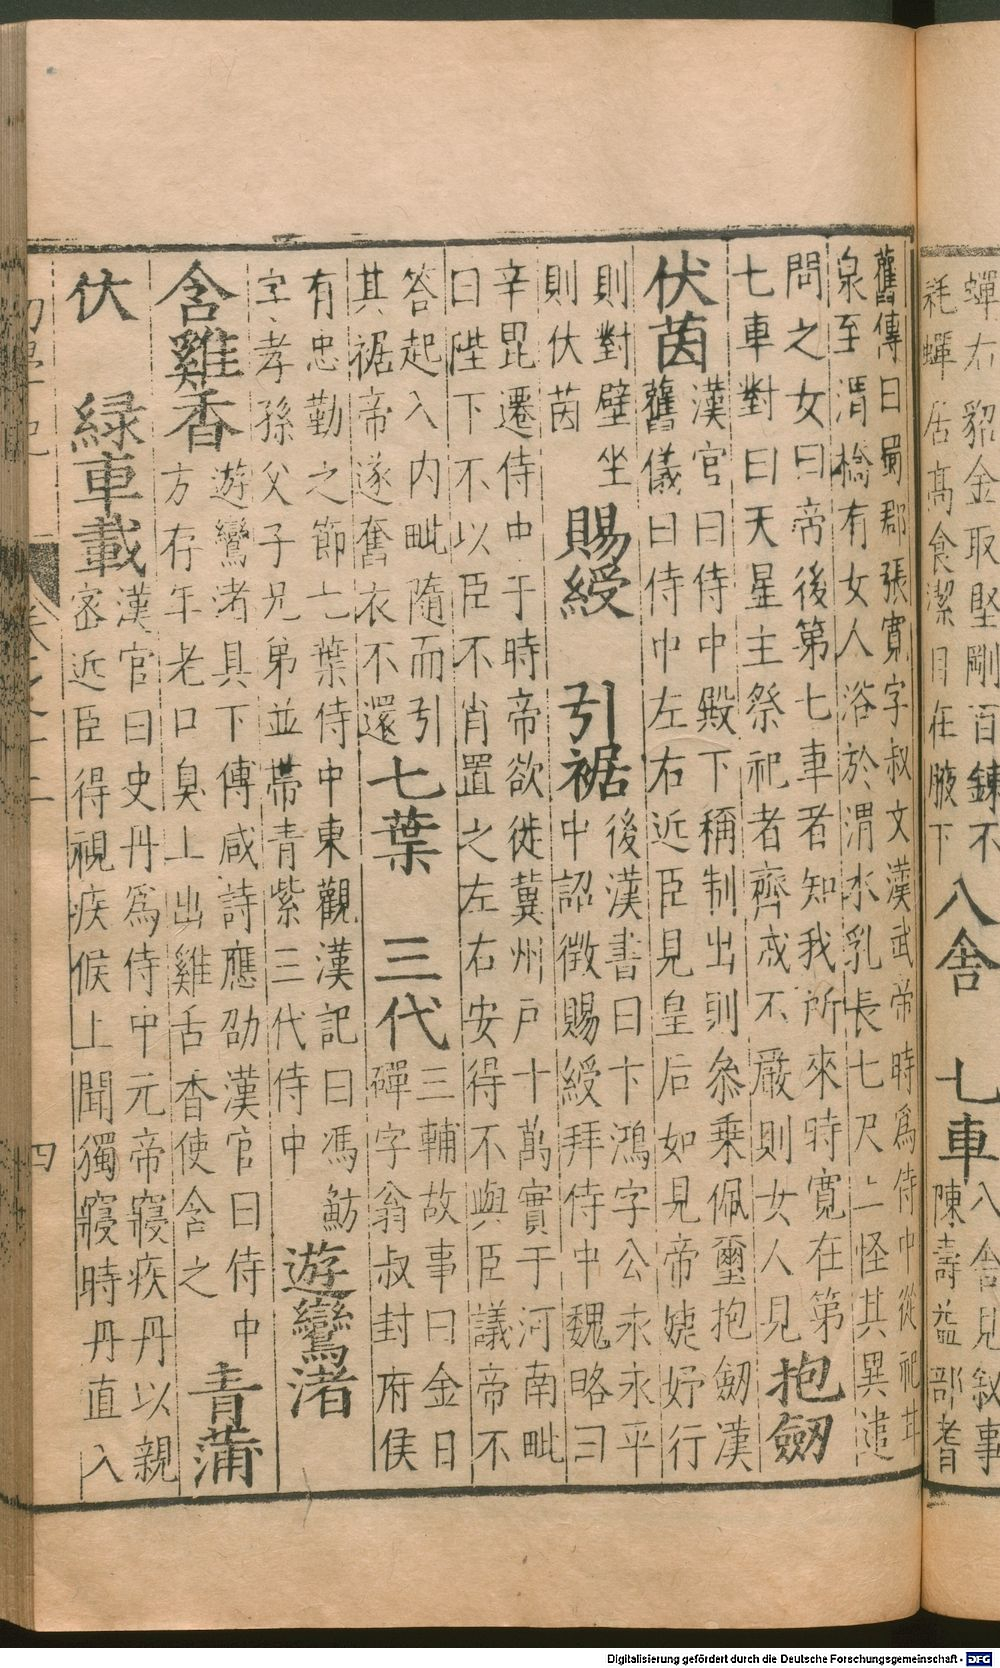 蟬右貂金取堅剛百鍊不
耗蟬居高食潔目在腋下
八舍　七車
八舍見敘事
陳壽益部耆
舊傳曰蜀郡張寬字叔文漢武帝時爲侍中從祀甘
泉至渭橋有女人浴於渭水乳長七尺上怪其異遣
問之女曰帝後第七車者知我所來時寬在第
七車對曰天星主祭祀者齊戒不嚴則女人見
抱劒
伏茵
漢官曰侍中殿下稱制出則叅乗佩璽抱劒漢
舊儀曰侍中左右近臣見皇后如見帝婕妤行
則對壁坐
則伏茵
賜綬　引裾
後漢書曰卞鴻字公永永平
中詔徵賜綬拜侍中魏略曰
辛毘遷侍中于時帝欲徙冀州戶十萬實于河南毗
曰陛下不以臣不肖置之左右安得不與臣議帝不
答起入内毗隨而引
其裾帝遂奮衣不還
七葉　三代
三輔故事曰金日
磾字翁叔封府侯
有忠勤之節七葉侍中東觀漢記曰馮魴
字孝孫父子兄弟並帶青紫三代侍中
遊鸞渚
含雞香
遊鸞渚具下傳咸詩應劭漢官曰侍中
方存年老口臭上出雞舌香使含之
青蒲
伏　緑車載
漢官曰史丹爲侍中元帝寢疾丹以親
密近臣得視疾候上聞獨寢時丹直入
卷之十二
四
Digitalisierung gefördert durch die Deutsche Forschungsgemeinschaft - DFG